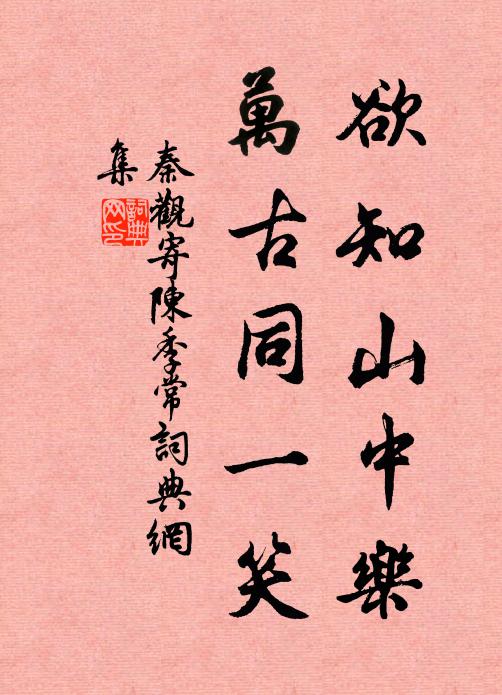 欲知山中樂
萬古同一笑
秦觀寄陳季常詞典網
集
詞典
网印